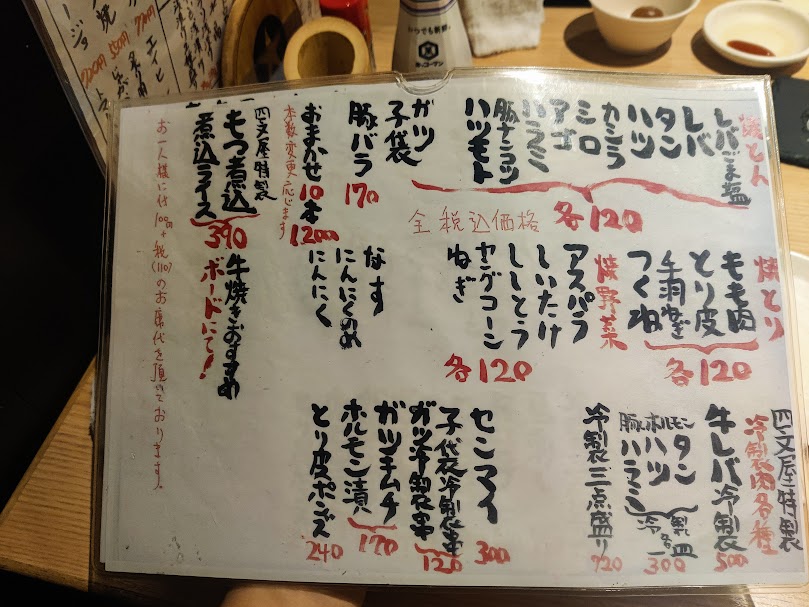 焼とん
レバごま塩
レバ
タン
ハツ
カシラ
シロ
アゴ
ハラミ
豚ナンコツ
ハツモト
各120
全税込価格
ガツ
子袋
豚バラ
170
おまかせ10本
1200
本数変更応じます
四文屋特製
もつ煮込
煮込ライス
390
お一人様に付100円+税(110)のお席代を頂いております。
焼とり
もも肉
とり皮
手羽先
つくね
各120
焼野菜
アスパラ
しいたけ
ししとう
ヤングコーン
ねぎ
各120
なす
にんにくのめ
にんにく
牛焼きおすすめ
ボードにて!
四文屋特製
冷製肉各種
牛レバ冷製
500
ホルモン
タン
ハツ
豚ハラミ
冷製
各一皿
300
冷製三点盛り
720
センマイ
300
子袋冷製串
ガツ冷製串
120
ガツキムチ
ホルモン漬
170
とり皮ポンズ
240
いつでも新鮮
キッコーマン